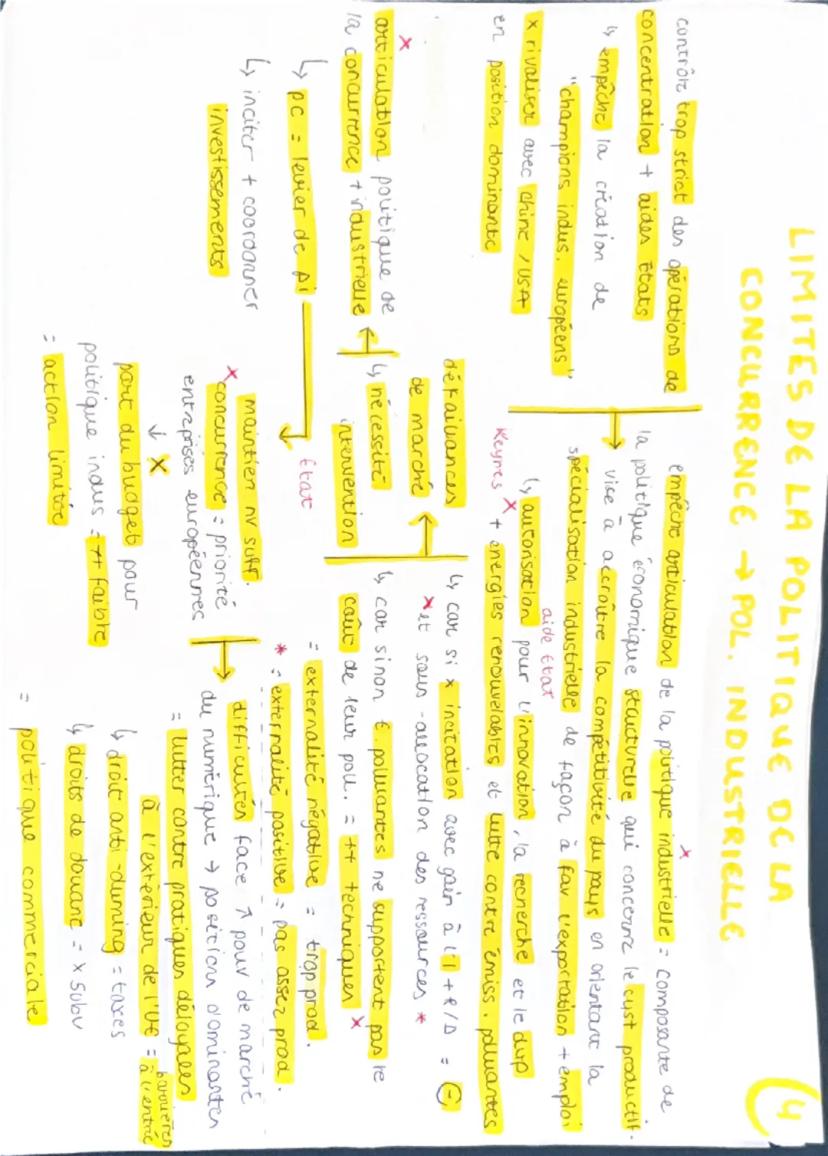 LIMITES DE LA POLITIQUE DE LA
CONCURRENCE → POL. INDUSTRIELLE
4
contrôle trop strict des opérations de
concentration + aides États
↳ empêche la création de
"champions indus. européens"
x rivaliser avec chine / USA
en position dominante
empêche articulation de la politique industrielle = composante de
la politique économique structurelle qui concerne le syst productif.
vise à accroître la compétitivité du pays en orientant la
spécialisation industrielle de façon à fav l'exportation + emploi
aide État
↳ autorisation pour l'innovation, la recherche et le dvp
Keynes
+ énergies renouvelables et lutte contre émiss. polluantes
x
articulation politique de
la concurrence + industrielle
↳ PC = levier de Pi
↳ inciter + coordonner
investissements
défaillances
de marché
↳ nécessité
intervention
État
↳ car si x incitation avec gain à l'I + R/D = (-)
x et sous-allocation des ressources *
↳ car sinon € polluantes ne supportent pas le
coût de leur poll. = ++ techniques x
= externalité négative = trop prod.
* = externalité positive = pas assez prod.
maintien nv suff.
x concurrence = priorité
entreprises européennes
↓ x
part du budget pour
politique indus = ++ faible
= action limitée
difficultés face ↗ pouv de marché
du numérique → positions dominantes
= lutter contre pratiques déloyales
à l'extérieur de l'UE = barrières
à l'entrée
↳ droit anti-duming = taxes
↳ droits de douane = x subv
= politique commerciale